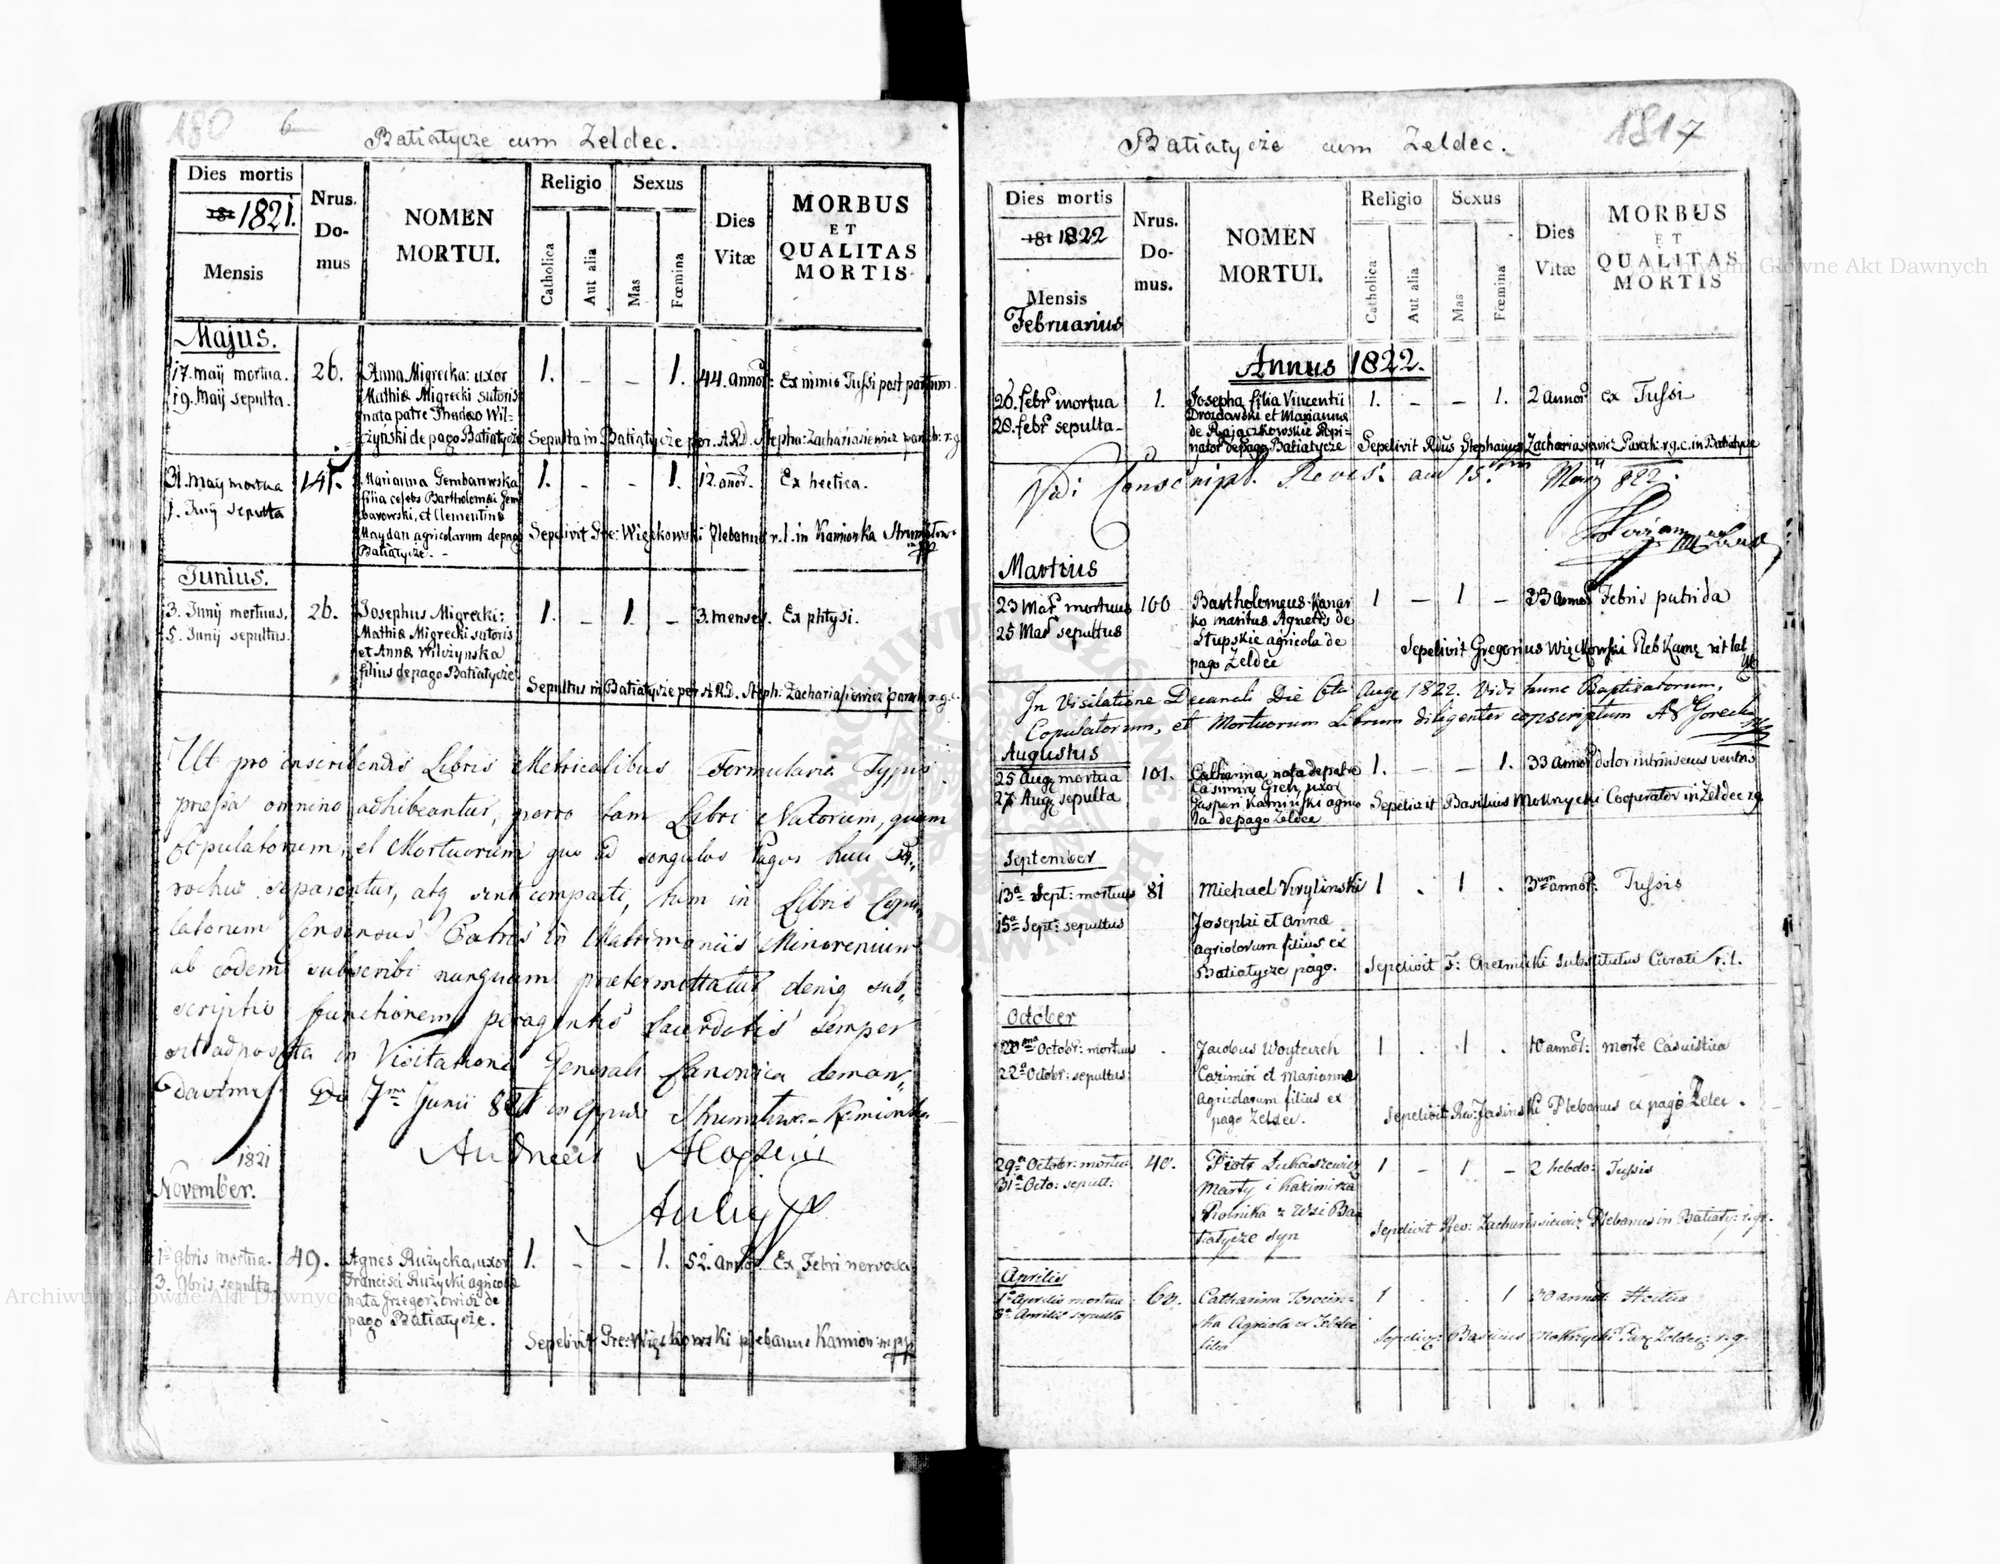 180 6
Batiatycze cum Zeldec.
Dies mortis
1821.
Mensis
Nrus.
Do-
mus
NOMEN
MORTUI.
Religio
Catholica
Aut alia
Sexus
Mas
Fœmina
Dies
Vitæ
MORBUS
ET
QUALITAS
MORTIS
Majus.
17. maij mortua. 26. Anna Migrecka: uxor 1. - - 1. 44. annor: Ex nimio Tussi post partum.
19. Maij sepulta. Mathiæ Migrecki sutoris
nata patre Thadæo Wil-
czyński de pago Batiatycze Sepulta in Batiatycze per A.R.D. Stepha: Zachariasiewicz paroch: r.g.
31. maij mortua 141. Marianna Gembarowska 1. - - 1. 12. annor. Ex hectica.
1. Junij sepulta filia celebs Bartholomæi Gem
barowski, et Clementinæ
Maydan agricolarum de pago Sepelivit Gre: Więckowski Plebanus r.l. in Kamionka Strumiłow:
Batiatycze. -
Junius.
3. Junij mortuus. 26. Josephus Migrecki: 1. - 1. - 3. menses. Ex phtysi.
5. Junij sepultus. Mathiæ Migrecki sutoris
et Annæ Wilczynska
filius de pago Batiatycze
Sepultus in Batiatycze per A.R.D. Steph: Zachariasiewicz paroch: r.g.c.
Ut pro inscribendis Libris Metricalibus Formularia Typis
pressa omnino adhibeantur, porro tam Libri Natorum, quam
Copulatorum, et Mortuorum quo ad singulos Pagos huius Pa,,
rochiæ separentur, atq sint compacti, tum in Libris Copu,,
latorum Consensus Patris in Matrimoniis Minorenium
ab eodem subscribi nunquam prætermittatur, deniq sub,,
scriptio functionem peragentis Sacerdotis semper
in Visitatione Generali Canonica deman,,
damus Die 7ma Junii 821 in oppido Strumilowa-Kamionka
Andreas Aloysius
1821
November.
1a 9bris mortua. 49. Agnes Rużycka, uxor 1. - - 1. 52. annor. Ex Febri nervosa
3. 9bris sepulta Francisci Rużycki agricolæ
nata Grzegorzowicz de
pago Batiatycze.
Sepelivit Gre: Więckowski plebanus Kamion: mpp
1817
Batiatycze cum Zeldec.
Dies mortis
181 1822
Mensis
Februarius
Nrus.
Do-
mus.
NOMEN
MORTUI.
Religio
Catholica
Aut alia
Sexus
Mas
Fœmina
Dies
Vitæ
MORBUS
ET
QUALITAS
MORTIS
Annus 1822.
26. febr mortua 1. Josepha filia Vincentii 1. - - 1. 2 annor. ex Tussi
28. febr sepulta Drozdawski et Marianna
de Rajaczkowskie Propi-
nator de pago Batiatycze Sepelivit Rdus Stephanus Zachariasiewicz Paroch: r.g.c. in Batiatycze
Vidi Conscript. Revis. am 15ten May 822.
Martius
23 Mar mortuus 100 Bartholomeus Kanar 1 - 1 - 33 annor Febris putrida
25 Mar sepultus ko maritus Agnetis de
Słupskie agricola de Sepelivit Gregorius Więckowski Pleb Kamz rit lat
pago Żeldec
In Visitatione Decanali Die 6ta Aug 1822. Vidi hunc Baptisatorum,
Copulatorum, et Mortuorum Librum diligenter conscriptum
Augustus
25 Aug mortua 101. Catharina nata de patre 1. - - 1. 33 annor dolor intrinsecus ventris
27 Aug sepulta Casimiry Greh, uxor
Gaspari Kaminski agrico Sepelivit Basilius Mokrzycki Cooperator in Zeldec r.g.
la de pago Żeldec
September
13a Sept: mortuus 81 Michael Wirylinski 1 . 1 . 3um annor: Tussis
15a Sept: sepultus Josephi et Anna
agricolorum filius ex
Batiatycze pago. Sepelivit F: Chelmicki substitutus Curati r.l.
October
20ma Octobr: mortuus . Jacobus Woytczech 1 . 1 . 10 annor: morte Casuistica
22a Octobr: sepultus Cazimiri et Marianna
agricolarum filius ex
pago Zeldec. Sepelivit Rev: Jasinski Plebanus ex pago Zelec.
29a Octobr: mortu: 40. Piotr Łukaszewicz 1 - 1 - 2 hebdo: Tussis
31a Octo: sepult: Marty i Kazimirza
Rolnika z Wsi Ba
tiatycze syn Sepelivit Rev: Zachariasiewicz Plebanus in Batiaty: r.gr.
Aprilis
1a Aprilis mortua 60. Catharina 1 . . 1 annor:
3a Aprilis sepulta ka Agricola ex Zeldec
filia Sepeliv: Basilius Mokrzycki Par Zeldec: r.g.
Archiwum Główne Akt Dawnych
Archiwum Główne Akt Dawnych
ARCHIWUM GŁÓWNE AKT DAWNYCH